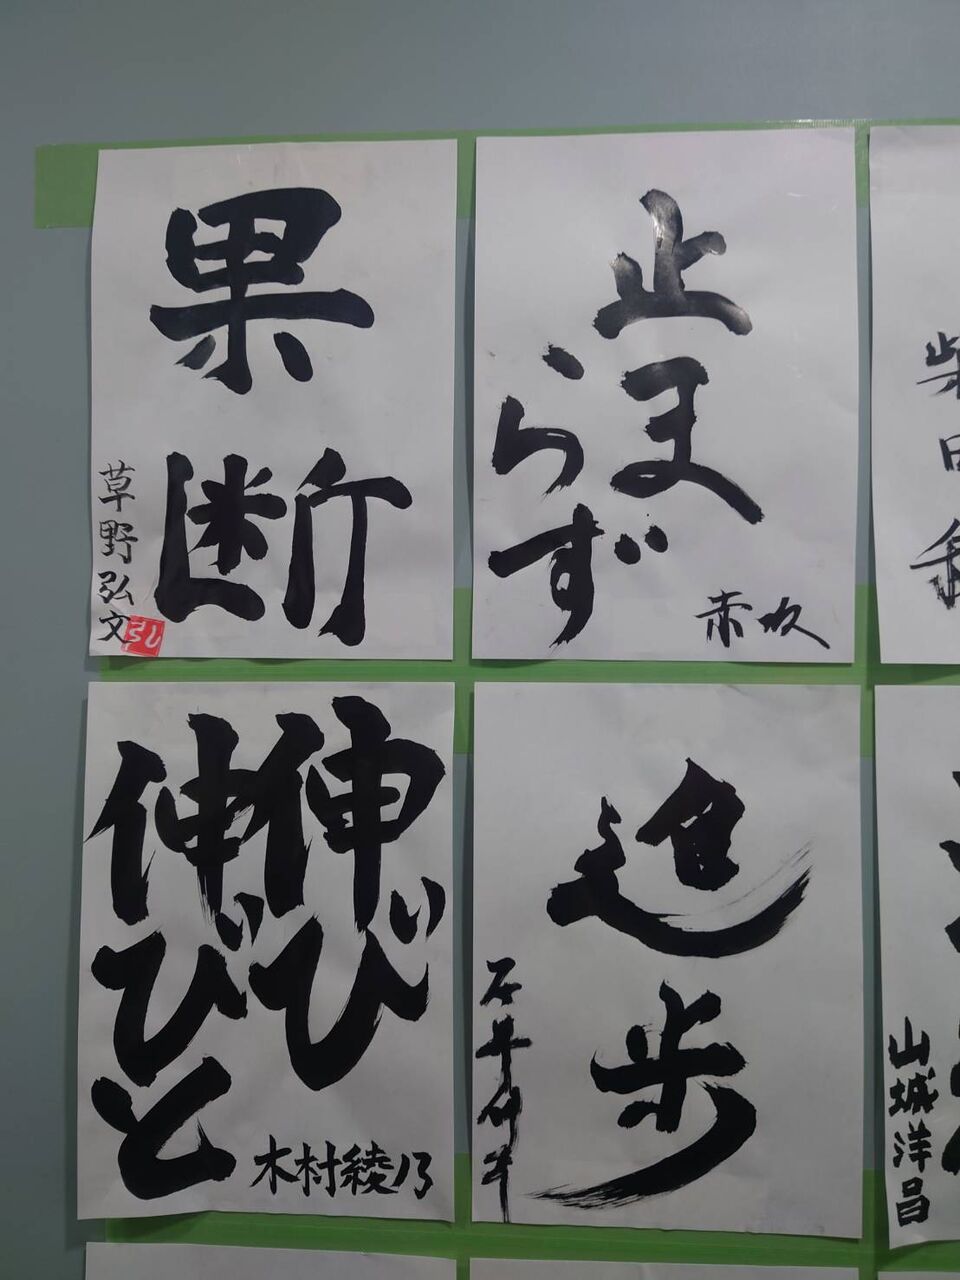 果断
草野弘文
弘
止ま
らず
赤坂
柴田
伸び
伸びと
木村綾乃
進歩
山城洋昌